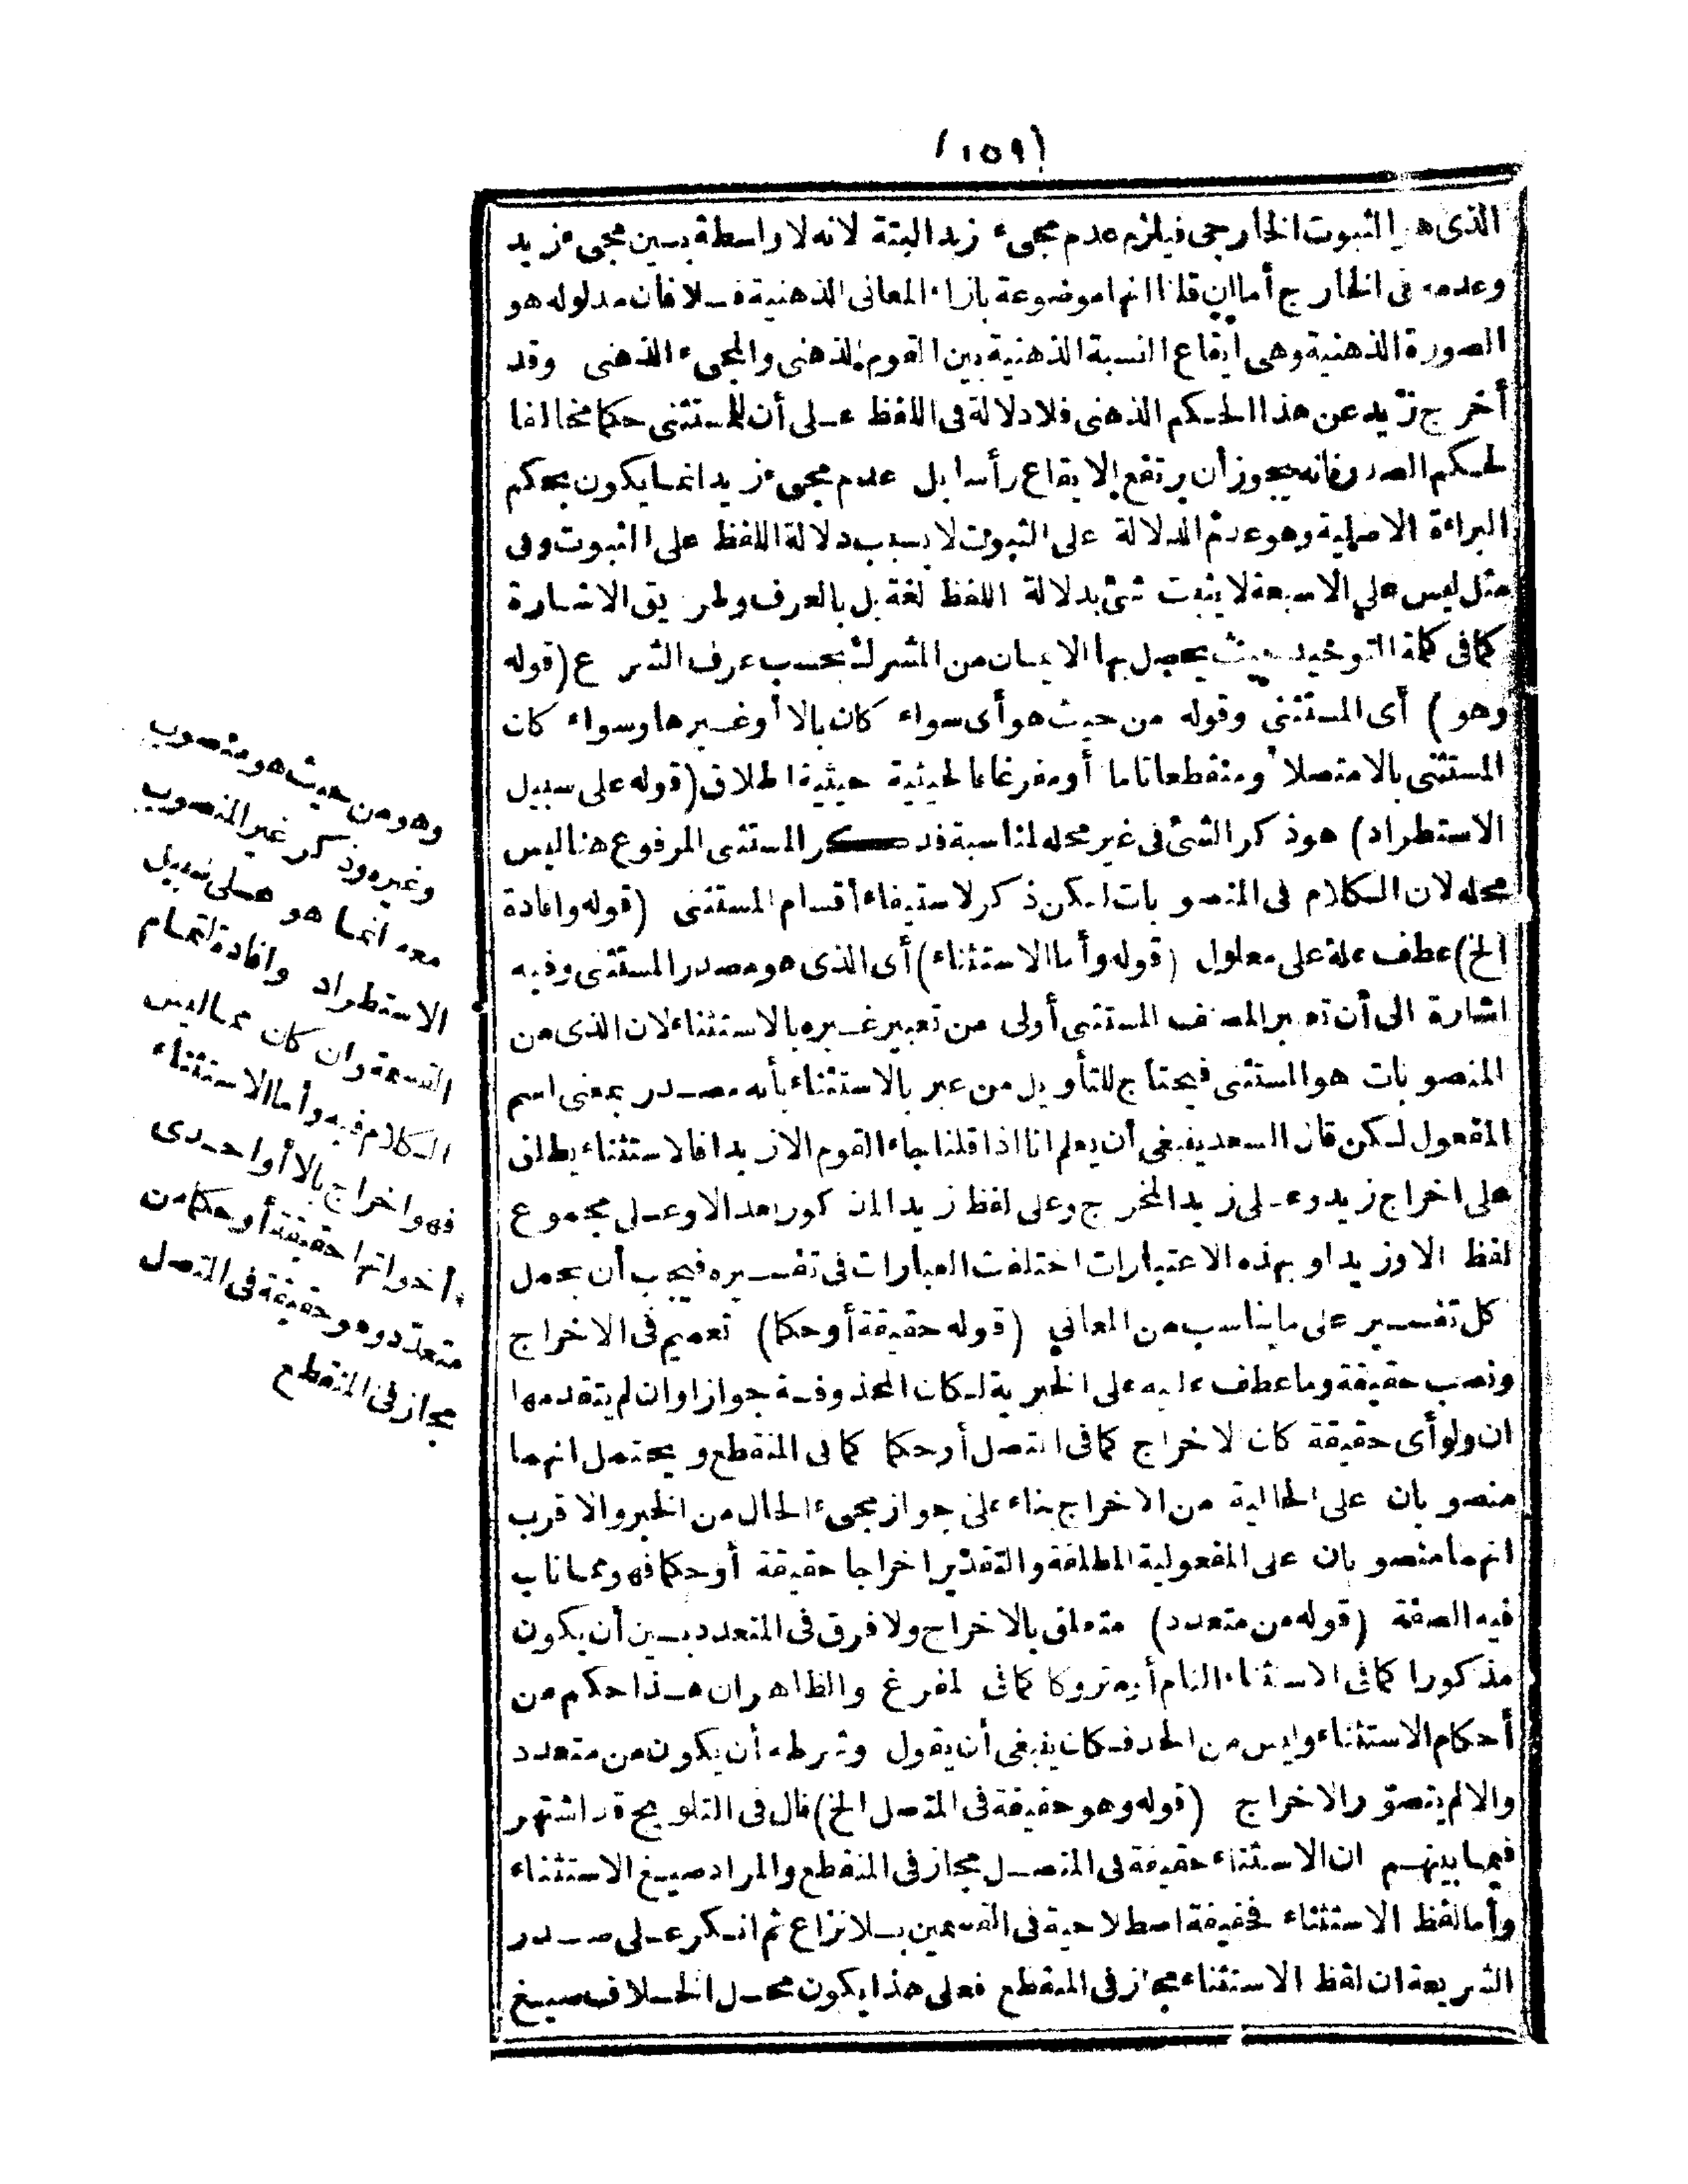 (١٥٩)
الذى هو الثبوت الخارجى فيلزم عدم مجىء زيد البتة لانه لا واسطة بين مجىء زيد
وعدمه فى الخارج أما ان قلنا انها موضوعة بازاء المعانى الذهنية فلا فأن مدلوله هو
الصورة الذهنية وهى ايقاع النسبة الذهنية بين القوم الذهنى والمجىء الذهنى وقد
أخرج زيد عن هذا الحكم الذهنى فلا دلالة فى اللفظ على أن للمستثنى حكما مخالفا
لحكم الصدر فانه يجوز أن يرتفع الايقاع رأسا بل عدم مجىء زيد انما يكون بحكم
البراءة الاصلية وهو عدم الدلالة على الثبوت لا بسبب دلالة اللفظ على الثبوت وفى
مثل ليس على الا سبعة لا يثبت شئ بدلالة اللفظ لغة بل بالعرف وطريق الاشارة
كما فى كلمة التوحيد حيث يحصل بها الايمان من المشرك بحسب عرف الشرع (قوله
وهو) أى المستثنى وقوله من حيث هو أى سواء كان بالا أو غيرها وسواء كان
المستثنى بالا متصلا أو منقطعا تاما أو مفرغا فالحيثية حيثية اطلاق (قوله على سبيل
الاستطراد) هو ذكر الشئ فى غير محله لمناسبة فذكر المستثنى المرفوع هنا ليس
محله لان الكلام فى المنصوبات لكن ذكر لاستيفاء أقسام المستثنى (قوله وافادة
الخ) عطف علة على معلول (قوله وأما الاستثناء) أى الذى هو مصدر المستثنى وفيه
اشارة الى أن تعبير المصنف المستثنى أولى من تعبير غيره بالاستثناء لان الذى من
المنصوبات هو المستثنى فيحتاج للتأويل من عبر بالاستثناء بأنه مصدر بمعنى اسم
المفعول لكن قال السعد ينبغى أن يعلم انا اذا قلنا جاء القوم الا زيدا فالاستثناء يطلق
على اخراج زيد وعلى زيد المخرج وعلى لفظ زيد المذكور بعد الا وعلى مجموع
لفظ الا وزيدا وبهذه الاعتبارات اختلفت العبارات فى تفسيره فيجب أن يحمل
كل تفسير على ما يناسب من المعانى (قوله حقيقة أو حكما) تعميم فى الاخراج
ونصب حقيقة وما عطف عليه على الخبرية لكان المحذوفة جوازا وان لم يتقدمها
ان ولو أى حقيقة كان الاخراج كما فى المتصل أو حكما كما فى المنقطع ويحتمل انهما
منصوبان على الحالية من الاخراج بناء على جواز مجىء الحال من الخبر والاقرب
انهما منصوبان على المفعولية المطلقة والتقدير اخراجا حقيقة أو حكما فهو مما ناب
فيه الصفة (قوله من متعدد) متعلق بالاخراج ولا فرق فى المتعدد بين أن يكون
مذكورا كما فى الاستثناء التام أو متروكا كما فى المفرغ والظاهر ان هذا حكم من
أحكام الاستثناء وليس من الحد فكان ينبغى أن يقول وشرطه أن يكون من متعدد
والا لم يتصور الاخراج (قوله وهو حقيقة فى المتصل الخ) قال فى التلويح قد اشتهر
فيما بينهم ان الاستثناء حقيقة فى المتصل مجاز فى المنقطع والمراد صيغ الاستثناء
وأما لفظ الاستثناء فحقيقة اصطلاحية فى القسمين بلا نزاع ثم انكر على صدر
الشريعة ان لفظ الاستثناء مجاز فى المنقطع فعلى هذا يكون محل الخلاف صيغ
وهو من حيث هو منصوب
وغيره وذكر غير المنصوب
معه انما هو على سبيل
الاستطراد وافادة لتمام
القسمة وان كان مما ليس
الكلام فيه وأما الاستثناء
فهو اخراج بالا أو احدى
أخواتها حقيقة أو حكما من
متعدد وهو حقيقة فى المتصل
مجاز فى المنقطع